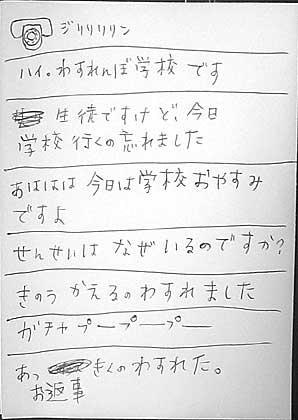 ジリリリリン
ハイ。わすれんぼ学校 です
生徒ですけど、今日
学校 行くの 忘れました
あははは 今日は 学校 おやすみ
ですよ
せんせいは なぜ いるのですか?
きのう かえるの わすれました
ガチャ プープープー
あっ きくの わすれた。
お返事